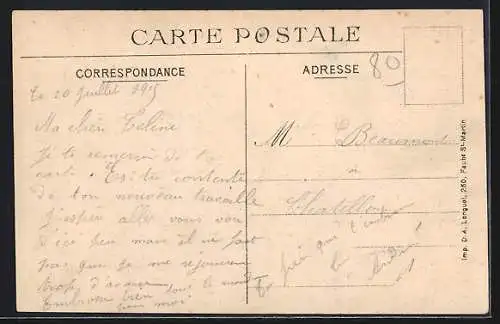 CARTE POSTALE
CORRESPONDANCE
ADRESSE
80
Le 20 Juillet 1915
Ma chère Céline
Je te remercie de ta
carte. Es tu contente
de ton nouveau travaille
J'espère aller vous voir
d'ici peu mais il ne faut
pas que je me réjouisse
trop d'avance
Embrasse bien tous le monde
pour moi
M
Beaumont
à
Chatillon
Imp. D. A. Longuet, 250, Faubg St-Martin